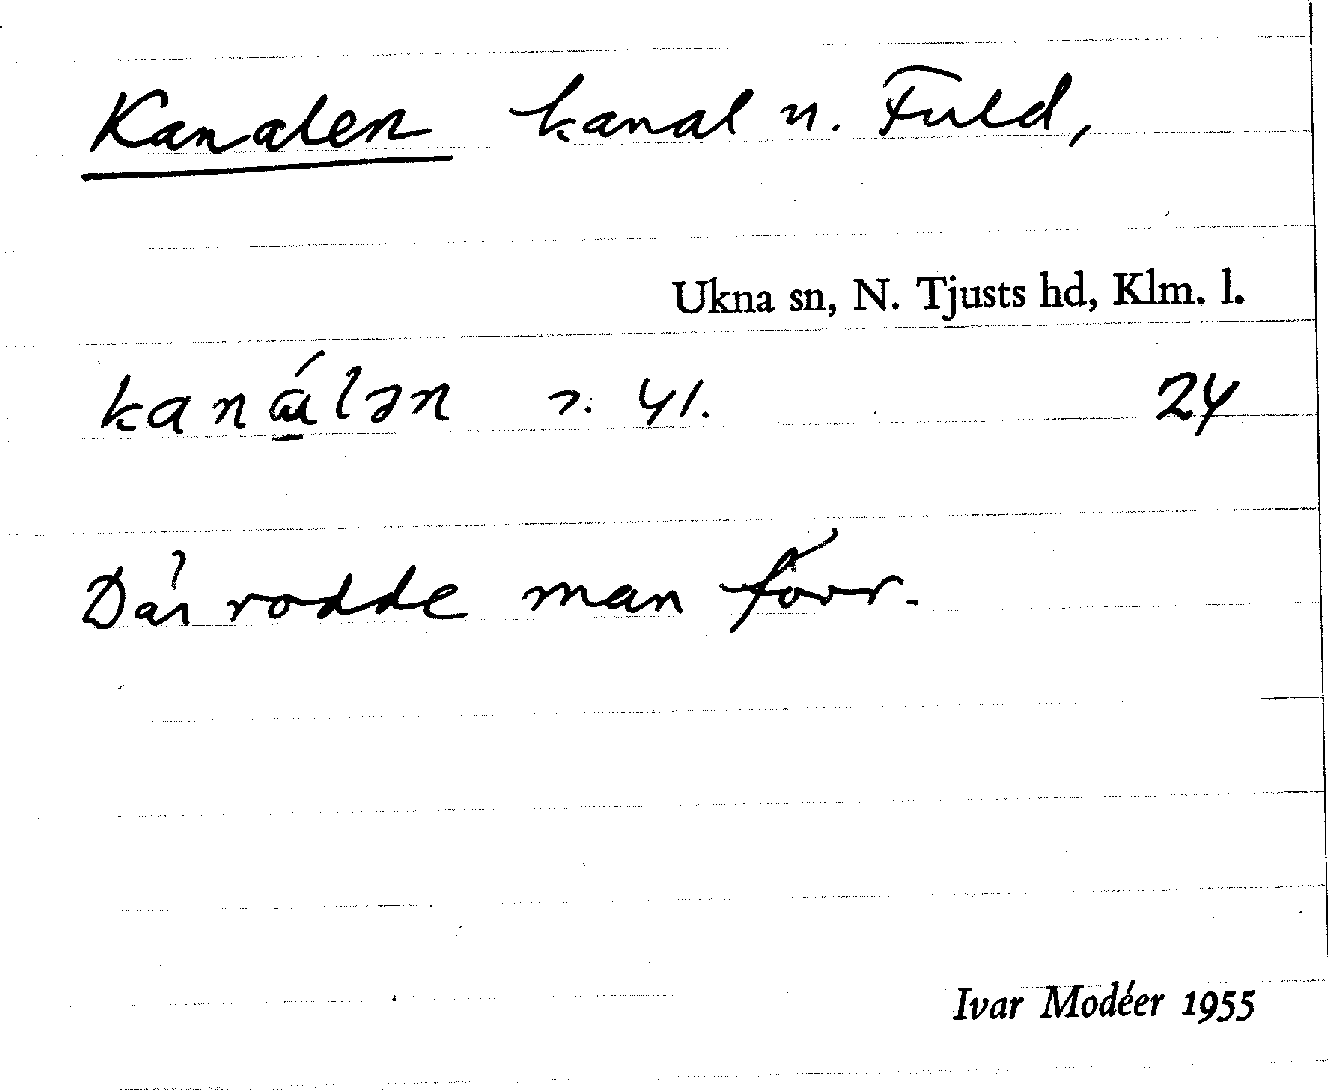 Kanalen kanal n. Fuld,
Ukna sn, N. Tjusts hd, Klm. l.
kanálən 41. 24
Där rodde man förr.
Ivar Modéer 1955